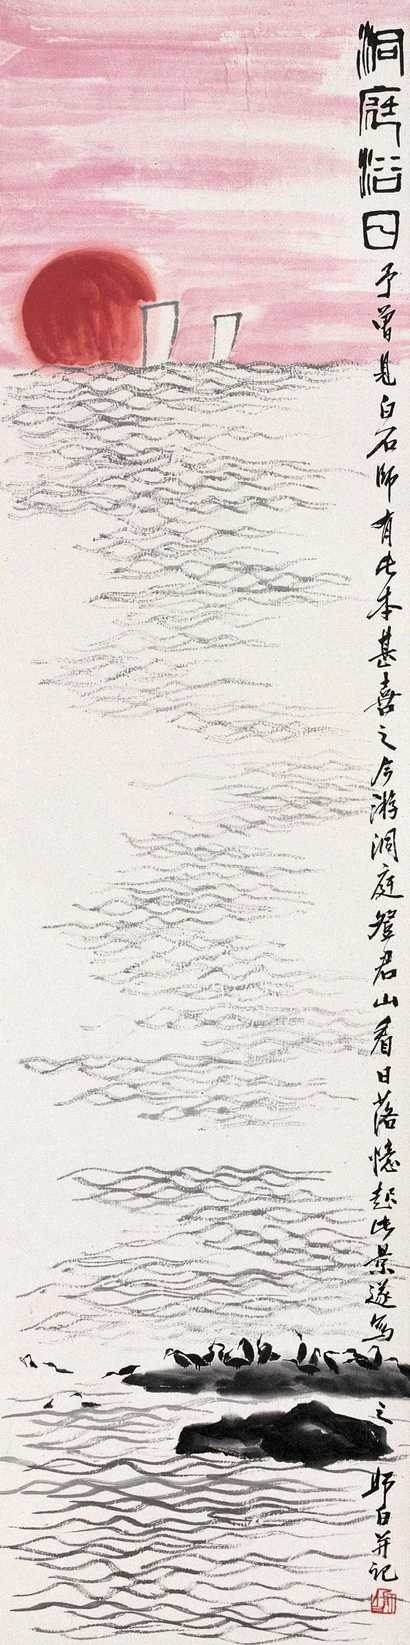 洞庭浴日
予曾见白石师有此本甚喜之今游洞庭登君山看日落憶起此景遂写之 師白并记